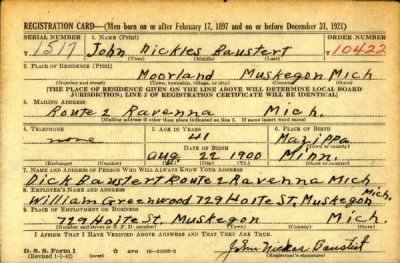 REGISTRATION CARD—(Men born on or after February 17, 1897 and on or before December 31, 1921)
SERIAL NUMBER 1. NAME (Print) ORDER NUMBER
1517 John Nickles Baustert 10422
(First) (Middle) (Last)
2. PLACE OF RESIDENCE (Print)
Moorland Muskegon Mich
(Number and street) (Town, township, village, or city) (County) (State)
[THE PLACE OF RESIDENCE GIVEN ON THE LINE ABOVE WILL DETERMINE LOCAL BOARD
JURISDICTION; LINE 2 OF REGISTRATION CERTIFICATE WILL BE IDENTICAL]
3. MAILING ADDRESS
Route 2 Ravenna Mich.
[Mailing address if other than place indicated on line 2. If same insert word same]
4. TELEPHONE 5. AGE IN YEARS 6. PLACE OF BIRTH
none 41 Mazippa
DATE OF BIRTH
Aug 22 1900 Minn.
7. NAME AND ADDRESS OF PERSON WHO WILL ALWAYS KNOW YOUR ADDRESS
Dick Baustert Route 2 Ravenna Mich
8. EMPLOYER'S NAME AND ADDRESS
William Greenwood 729 Hoite St, Muskegon Mich.
9. PLACE OF EMPLOYMENT OR BUSINESS
729 Hoite St. Muskegon Mich.
(Number and street or R. F. D. number) (Town) (County) (State)
I AFFIRM THAT I HAVE VERIFIED ABOVE ANSWERS AND THAT THEY ARE TRUE.
D. S. S. Form 1
(Revised 1-1-42) (over)